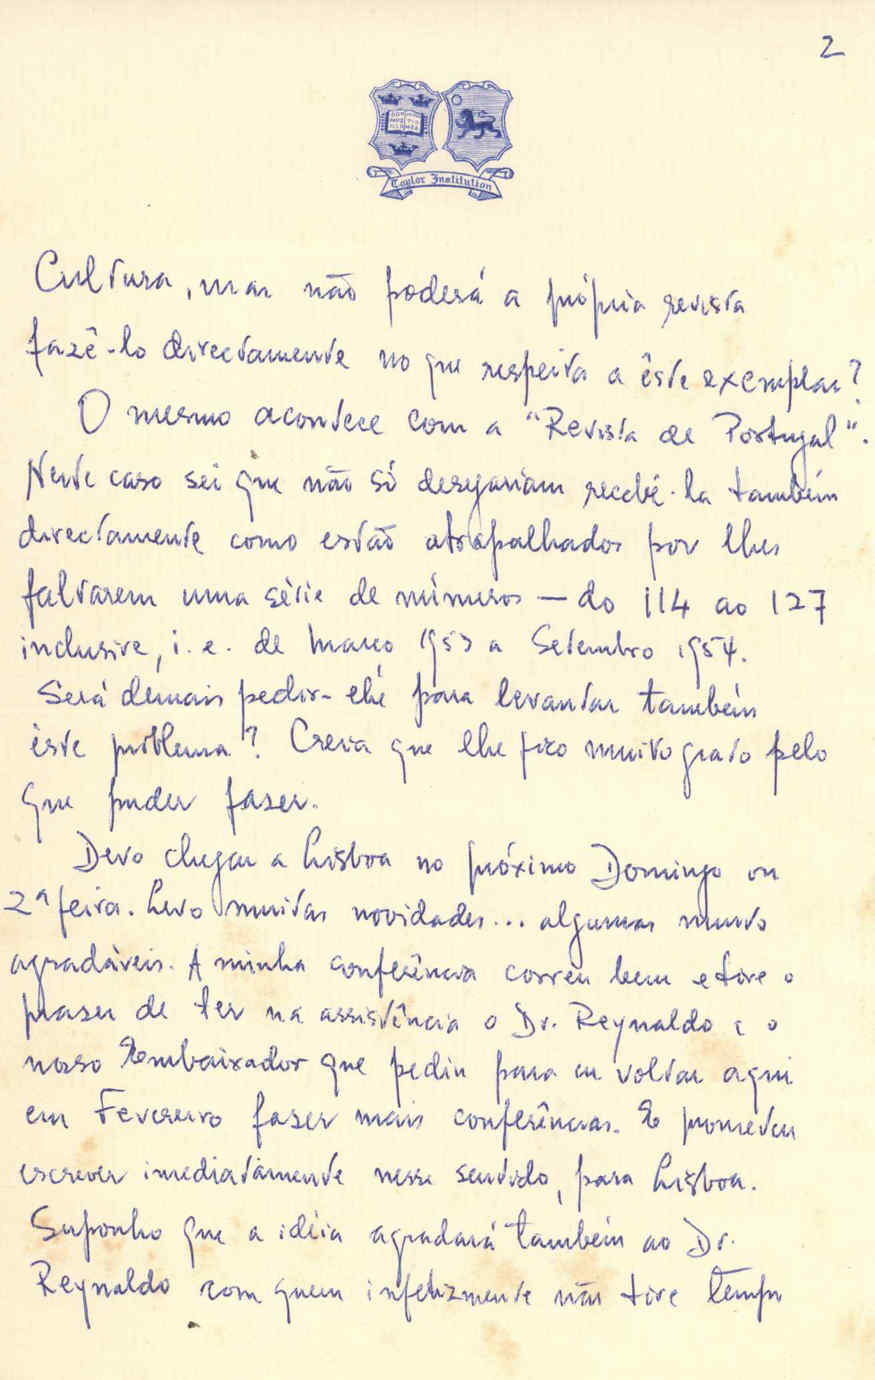 2
DOMINUS ILLUMINATIO MEA
Taylor Institution
Cultura, mas não poderá a própria revista
fazê-lo directamente no que respeita a êste exemplar?
O mesmo acontece com a "Revista de Portugal".
Neste caso sei que não só desejariam recebê-la também
directamente como estão atrapalhados por lhes
faltarem uma série de números — do 114 ao 127
inclusive, i. e. de Março 1953 a Setembro 1954.
Será demais pedir-lhe para levantar também
êste problema? Creia que lhe fico muito grato pelo
que puder fazer.
Devo chegar a Lisboa no próximo Domingo ou
2ª feira. Levo muitas novidades... algumas muito
agradáveis. A minha conferência correu bem e tive o
prazer de ter na assistência o Dr. Reynaldo e o
nosso Embaixador que pediu para eu voltar aqui
em Fevereiro fazer mais conferências. E prometeu
escrever imediatamente nesse sentido, para Lisboa.
Suponho que a idéia agradará também ao Dr.
Reynaldo com quem infelizmente não tive tempo